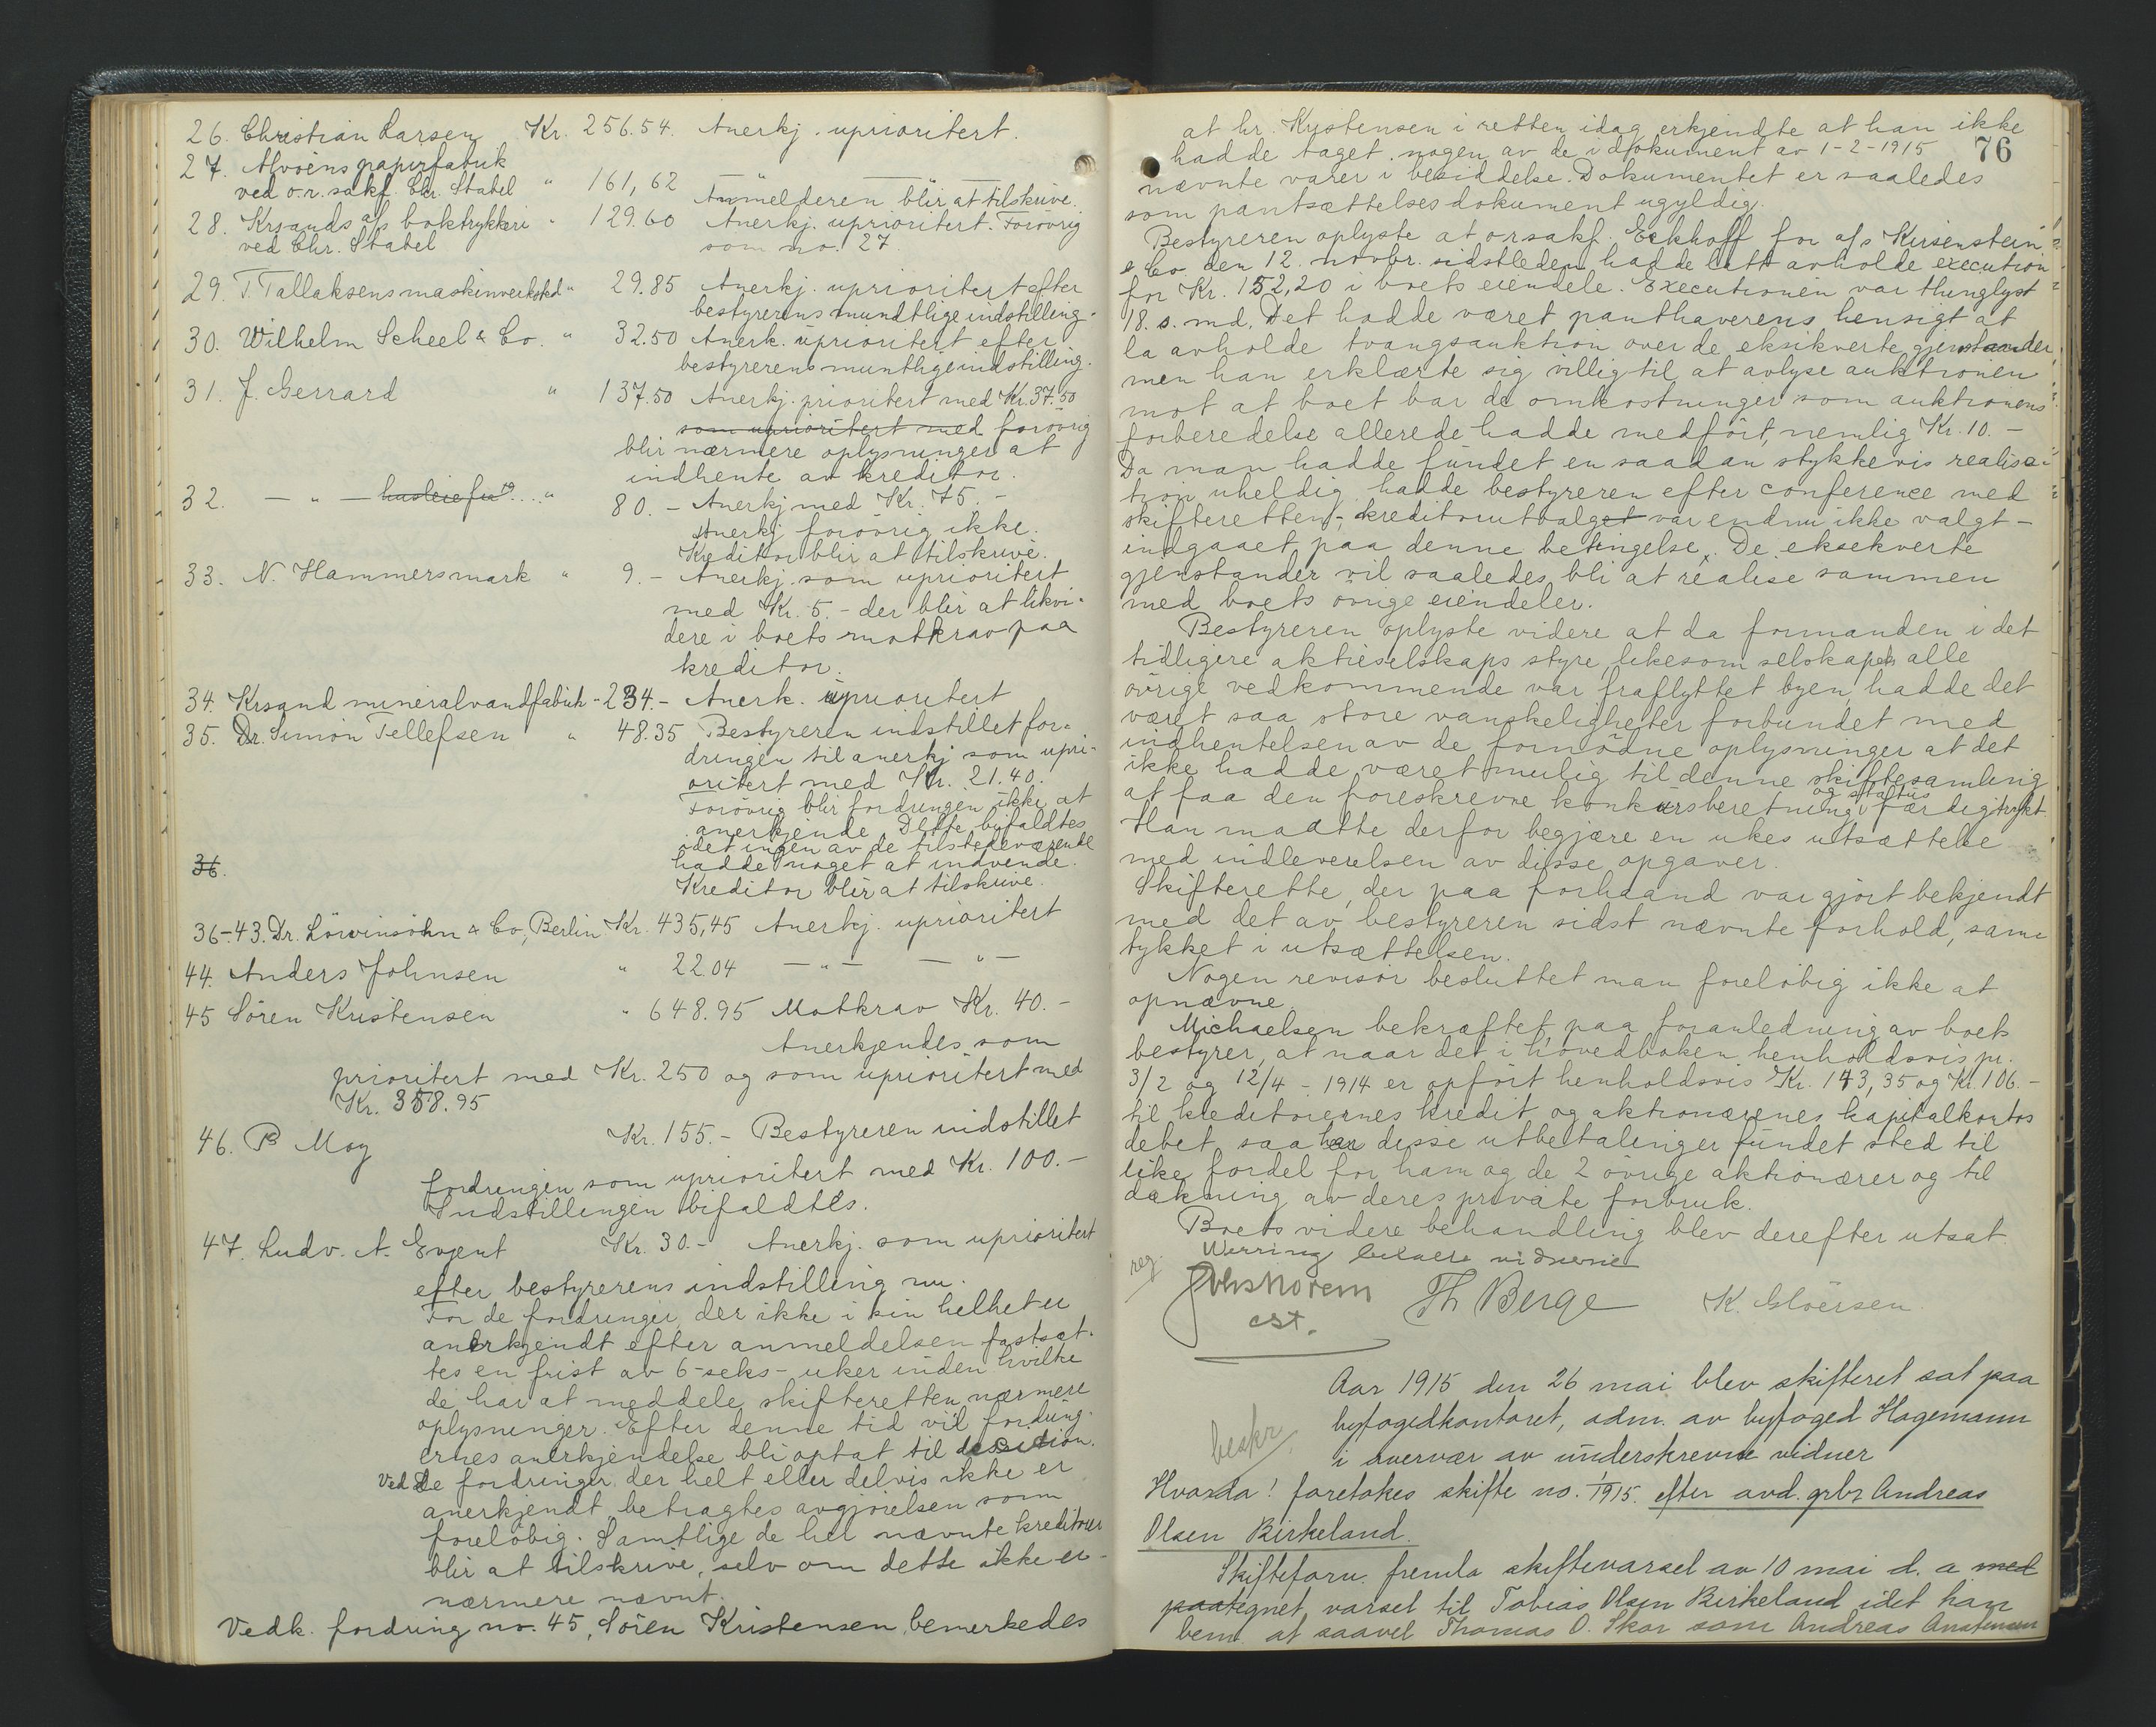 26. Christian Larsen Kr. 256.54. Anerkj. uprioritert.
27. Alvøens papirfabrik
ved o.r. sakf. Chr. Stabel " 161,62 — " —
Anmelderen blir at tilskrive.
28. Krsands a/s boktrykkeri " 129.60 Anerkj. uprioritert. Forövrig
ved Chr. Stabel som no. 27
29. T. Tallaksens maskinverksted " 29.85 Anerkj. uprioritert efter
bestyrerens mundtlige indstilling.
30. Wilhelm Scheel & Co. " 32.50 Anerk. uprioritert efter
bestyrerens muntlige indstilling.
31. J. Gerrard " 137.50 Anerkj. prioritert med Kr. 37.50
som uprioritert med forövrig
blir nærmere oplysninger at
indhente av kreditor.
32. — " — husleie fra " 80.- Anerkj med Kr. 75.-
Anerkj forövrig ikke.
Kreditor blir at tilskrive.
33. N. Hammersmark " 9.- Anerkj. som uprioritert
med Kr. 5.- der blir at likvi-
dere i boets motkrav paa
kreditor.
34. Krsand mineralvandfabrik - 234.- Anerk. uprioritert
35. Dr. Simon Tellefsen " 48.35 Bestyreren indstillet for-
dringen til anerkj som upri-
oritert med Kr. 21.40.
Forövrig blir fordringen ikke at
anerkjende. Dette bifaldtes
idet ingen av de tilstedeværende
36. hadde noget at indvende.
Kreditor blir at tilskrive.
36-43. Dr. Löwinsohn & Co, Berlin Kr. 435,45 Anerkj. uprioritert
44. Anders Johnsen " 22.04 — " — — " —
45 Sören Kristensen " 648.95 Motkrav Kr. 40.-
Anerkjendes som
prioritert med Kr. 250 og som uprioritert med
Kr. 358.95
46. B Moy Kr. 155.- Bestyreren indstillet
fordringen som uprioritert med Kr. 100.-
Indstillingen bifaldtes.
47. Ludv. A. Evjent Kr. 30.- Anerkj. som uprioritert
efter bestyrerens indstilling nu.
For de fordringer, der ikke i sin helhet er
anerkjendt efter anmeldelsen fastsat-
tes en frist av 6-seks- uker inden hvilke
de har at meddele skifteretten nærmere
oplysninger. Efter denne tid vil fordring-
ernes anerkjendelse bli optat til decision.
Ved de fordringer der helt eller delvis ikke er
anerkjendt, betragtes avgjörelsen som
forelöbig. Samtlige de her nævnte kreditorer
blir at tilskrive, selv om dette ikke er
nærmere nævnt.
Vedk. fordring no. 45, Sören Kristensen, bemerkedes
76
at hr. Kristensen i retten idag erkjendte at han ikke
hadde taget nogen av de i dokument av 1-2-1915
nævnte varer i besiddelse. Dokumentet er saaledes
som pantsættelsesdokument ugyldig.
Bestyreren oplyste at orsakf. Eckhoff for a/s Kirsenstein
& Co. den 12. novbr. sidstleden hadde latt avholde execution
for Kr. 152,20 i boets eiendele. Executionen var thinglyst
18. s. md. Det hadde været panthaverens hensigt at
la avholde tvangsauktion over de eksikverte gjenstander,
men han erklærte sig villig til at avlyse auktionen
mot at boet bar de omkostninger som auktionens
forberedelse allerede hadde medført, nemlig Kr. 10.-
Da man hadde fundet en saadan stykkevis realisa-
tion uheldig, hadde bestyreren efter conference med
skifteretten,- kreditorutvalget var endnu ikke valgt -
indgaaet paa denne betingelse. De eksekverte
gjenstander vil saaledes bli at realise sammen
med boets övrige eiendeler.
Bestyreren oplyste videre at da formanden i det
tidligere aktieselskaps styre, likesom selskapets alle
övrige vedkommende var fraflyttet byen, hadde det
været saa store vanskeligheter forbundet med
indhentelsen av de fornödne oplysninger at det
ikke hadde været mulig til denne skiftesamling
og status
at faa den foreskrevne konkursberetning færdigtrykt.
Han maatte derfor begjære en ukes utsættelse
med indleverelsen av disse opgaver.
Skifterette, der paa forhaand var gjort bekjendt
med det av bestyreren sidst nævnte forhold, sam-
tykket i utsættelsen.
Nogen revisor besluttet man forelöbig ikke at
opnævne.
Michaelsen bekræftet paa foranledning av boets
bestyrer, at naar det i hovedboken henholdsvis pr.
3/2 og 12/4 - 1914 er opfört henholdsvis Kr. 143,35 og Kr. 106.-
til kreditorernes kredit og aktionærenes kapitalkontos
debet, saa har disse utbetalinger fundet sted til
like fordel for ham og de 2 övrige aktionærer og til
dækning av deres private forbruk.
Boets videre behandling blev derefter utsat
reg.
Th Berge K. Glöersen.
cst.
Aar 1915 den 26 mai blev skifteret sat paa
byfogedkontoret, adm. av byfoged Hagemann
beskr. i overvær av underskrevne vidner
Hvorda! foretokes skifte no. 1/1915. efter avd. grbr Andreas
Olsen Birkeland.
Skifteforv. fremla skiftevarsel av 10 mai d. a med
paategnet varsel til Tobias Olsen Birkeland idet han
bem. at saavel Thomas O. Skar som Andreas